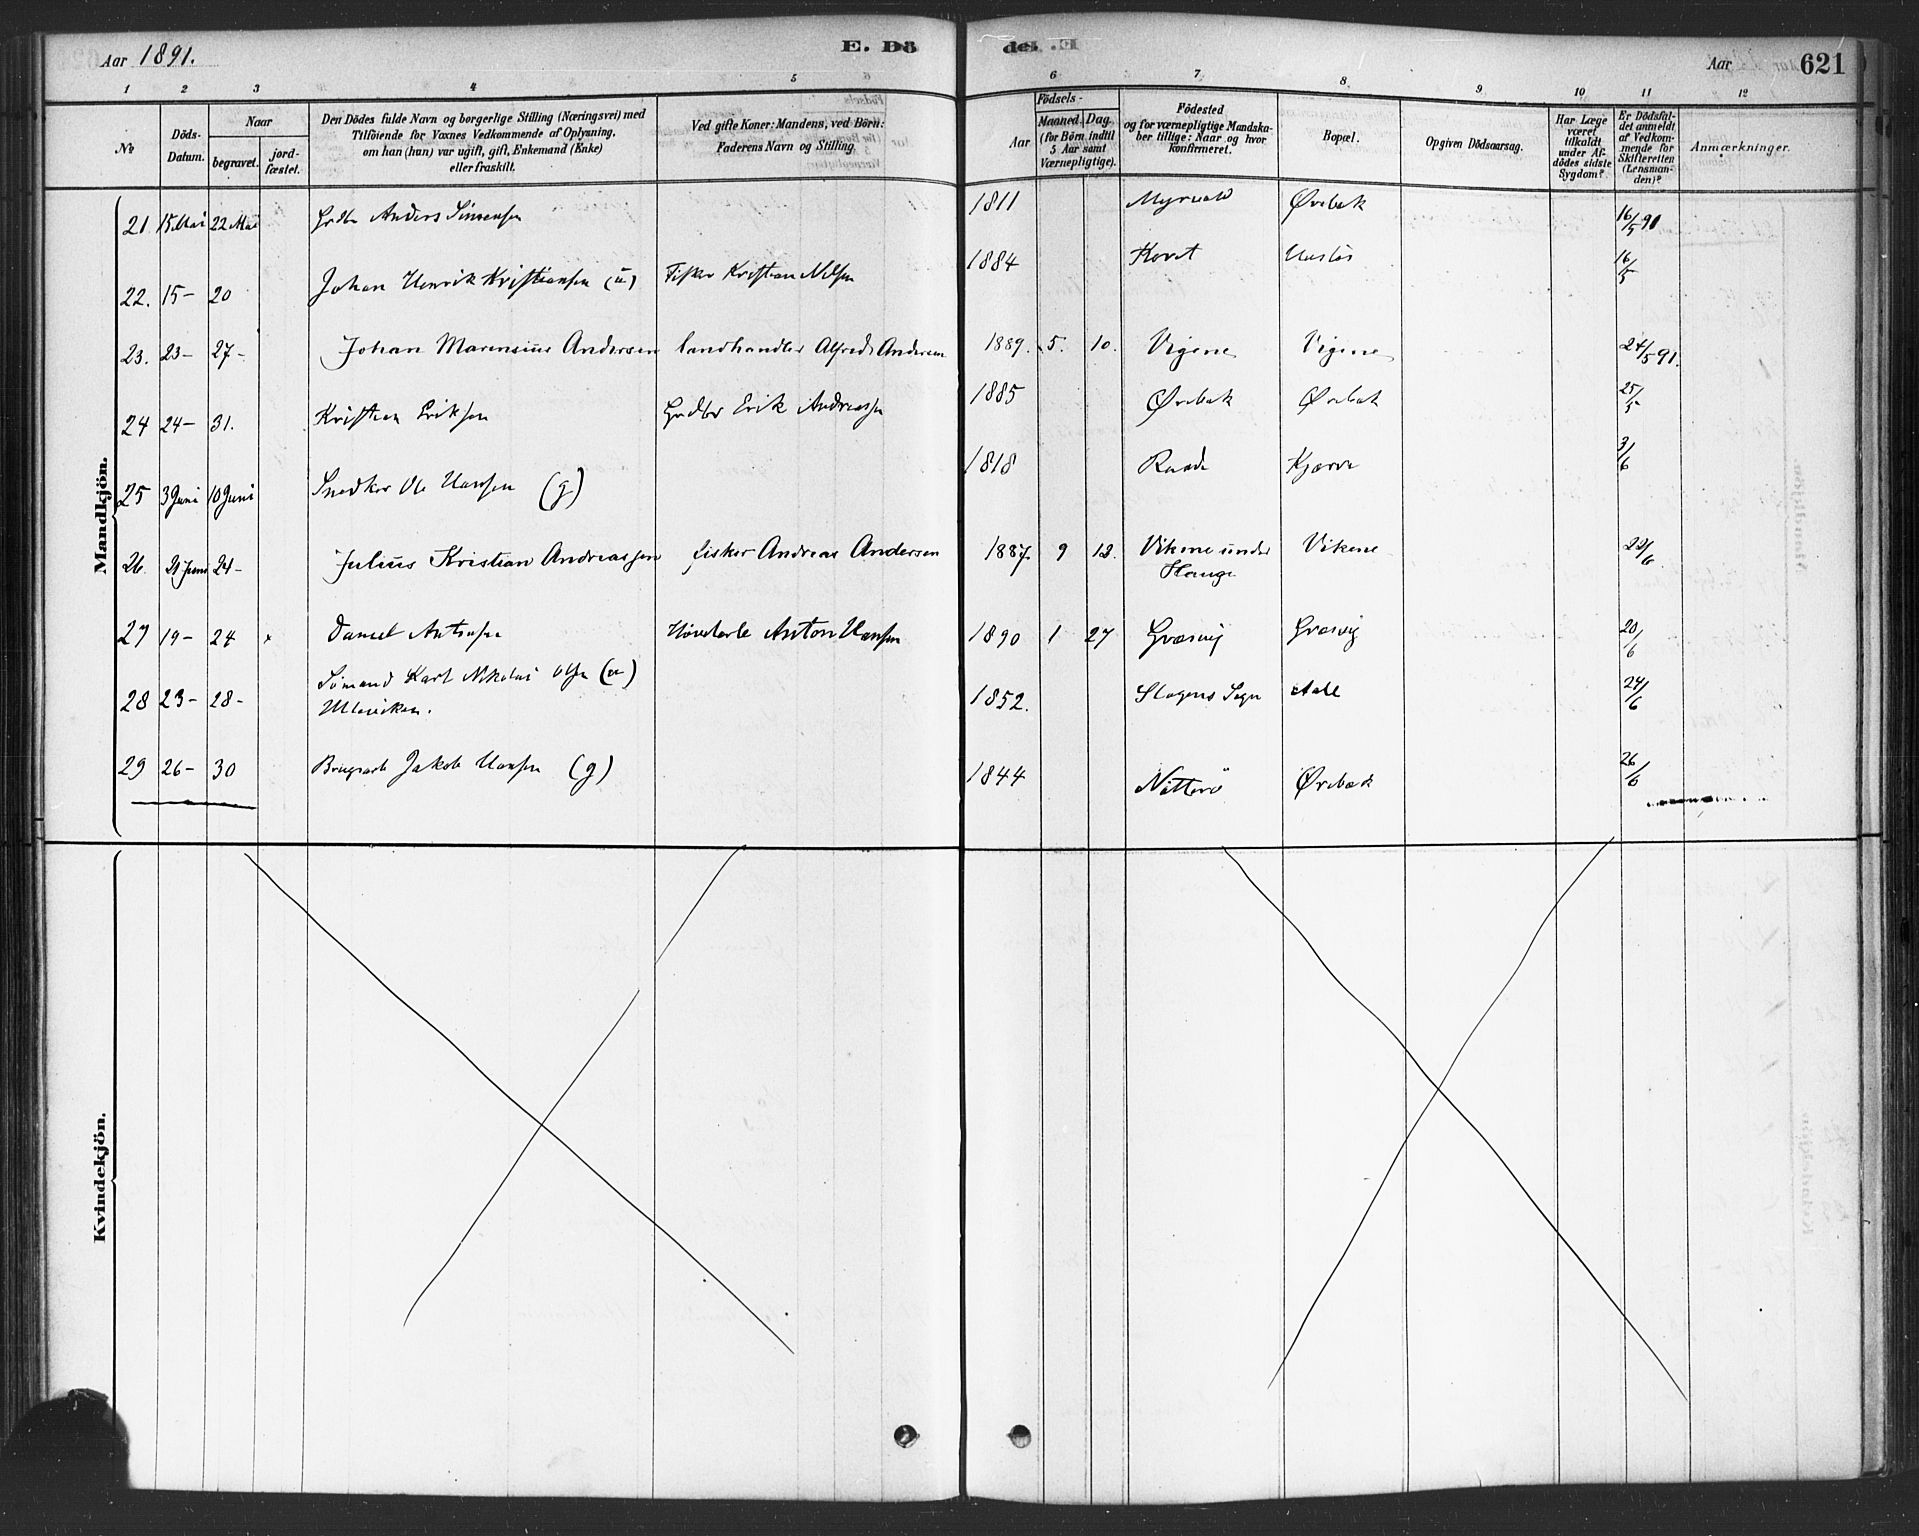 Aar 1891.
E. Dö
Aar 621
1 2 3 4 5 6 7 8. 9 10 11 12
No
Döds-
Datum.
Naar
begravet.
jord-
fæstet.
Den Dödes fulde Navn og borgerlige Stilling (Næringsvei) med
Tilföiende for Voxnes Vedkommende af Oplysning,
om han (hun) var ugift, gift, Enkemand (Enke)
eller fraskilt.
Ved gifte Koner: Mandens, ved Börn:
Faderens Navn og Stilling.
Födsels-
Aar
Maaned. Dag.
(for Börn indtil
5 Aar samt
Værnepligtige).
Födested
og for værnepligtige Mandska-
ber tillige: Naar og hvor
konfirmeret.
Bopæl.
Opgiven Dödsaarsag.
Har Læge
været
tilkaldt
under Af-
dödes sidste
Sygdom?
Er Dödsfal-
det anmeldt
af Vedkom-
mende for
Skifteretten
(Lensman-
den)?
Anmærkninger.
Mandkjön.
21. 15 Mai 22 Mai Grdbr Anders Simensen 1811 Myrvold Ørebæk 16/5 91
22. 15- 20 Johan Henrik Kristiansen (u) Fisker Kristian Nilsen 1884 16/5
23. 23- 27- Johan Marensius Andersen landhandler Alfred Andersen 1889. 5. 10. Vigene Vigene 24/5 91.
24 24- 31. Kristian Eriksen Grdbr Erik Andreassen 1885 Ørebæk Ørebæk 25/5
25 3 Juni 10 Juni Snedker Ole Hansen (g) 1818 Raade Kjærre 3/6
26 21 Juni 24- Julius Kristian Andreassen fisker Andreas Andersen 1887. 9 12. Vikene under Vikene 22/6.
Hauge
27 19- 24 x Daniel Antonsen Anton Hansen 1890 1 27 Græsvig Græsvig 20/6
28 23- 28- Sømand Karl Nikolai Olsen (u) 1852. Slagens Sogn Aale 24/6
Ulleviken.
29 26- 30 Brugsarb Jakob Hansen (g) 1844 Nøtterö Ørebæk 26/6
Kvindekjön.